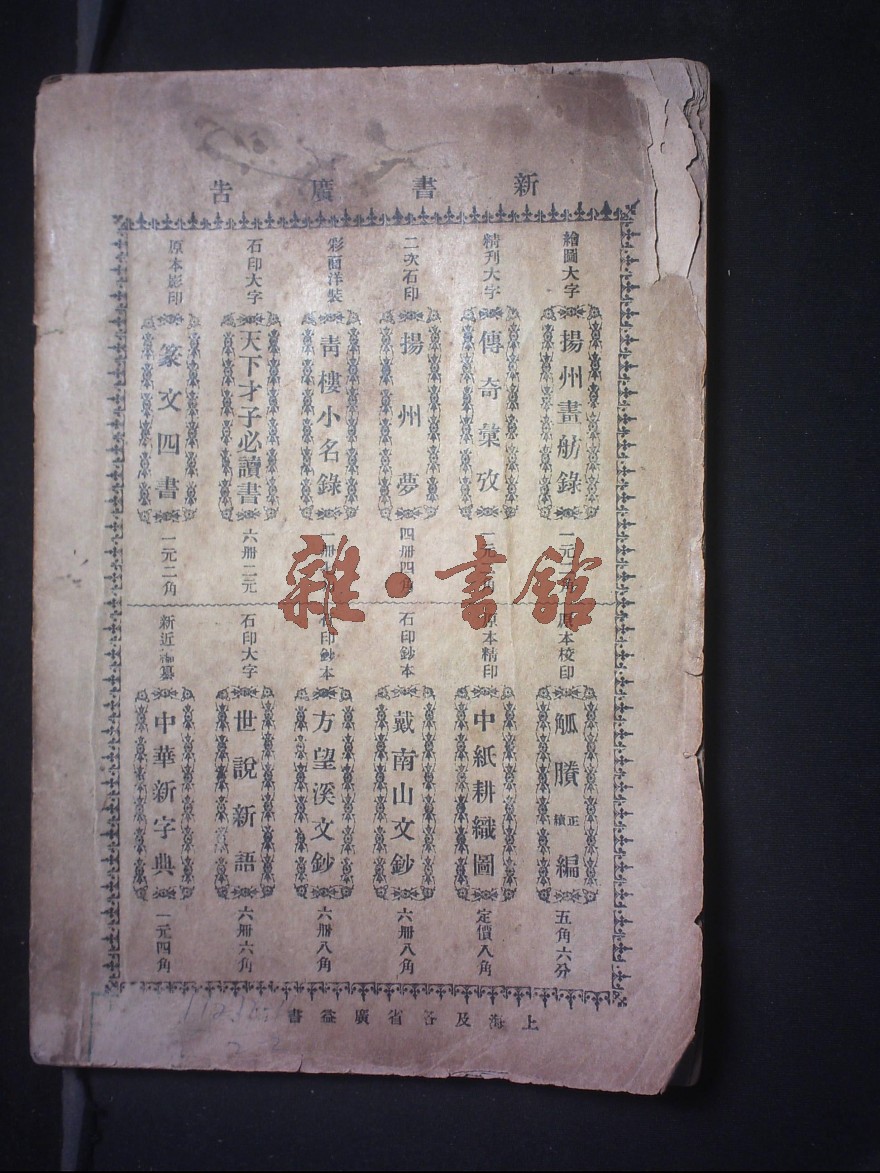 新書廣告
繪圖大字
揚州畫舫錄
一元二角
精刊大字
傳奇彙攷
二次石印
揚州夢
四冊四角
彩面洋裝
青樓小名錄
石印大字
天下才子必讀書
六冊二元
原本影印
篆文四書
一元二角
原本校印
觚賸正續編
五角六分
原本精印
中紙耕織圖
定價八角
石印鈔本
戴南山文鈔
六冊八角
石印鈔本
方望溪文鈔
六冊八角
石印大字
世說新語
六冊六角
新近編纂
中華新字典
一元四角
上海及各省廣益書
雜·書館